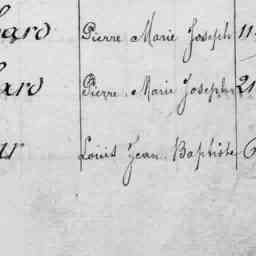 Pierre Marie Joseph
Pierre Marie Joseph
Louis Jean Baptiste